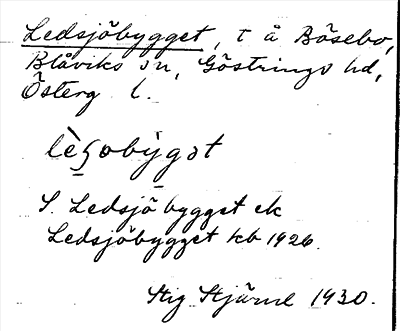 Ledsjöbygget, t å Bösebo,
Blåviks sn, Göstrings hd,
Österg l.
lèʂobỳgət
S. Ledsjöbygget ek
Ledsjöbygget kb 1926.
Stig Stjärne 1930.